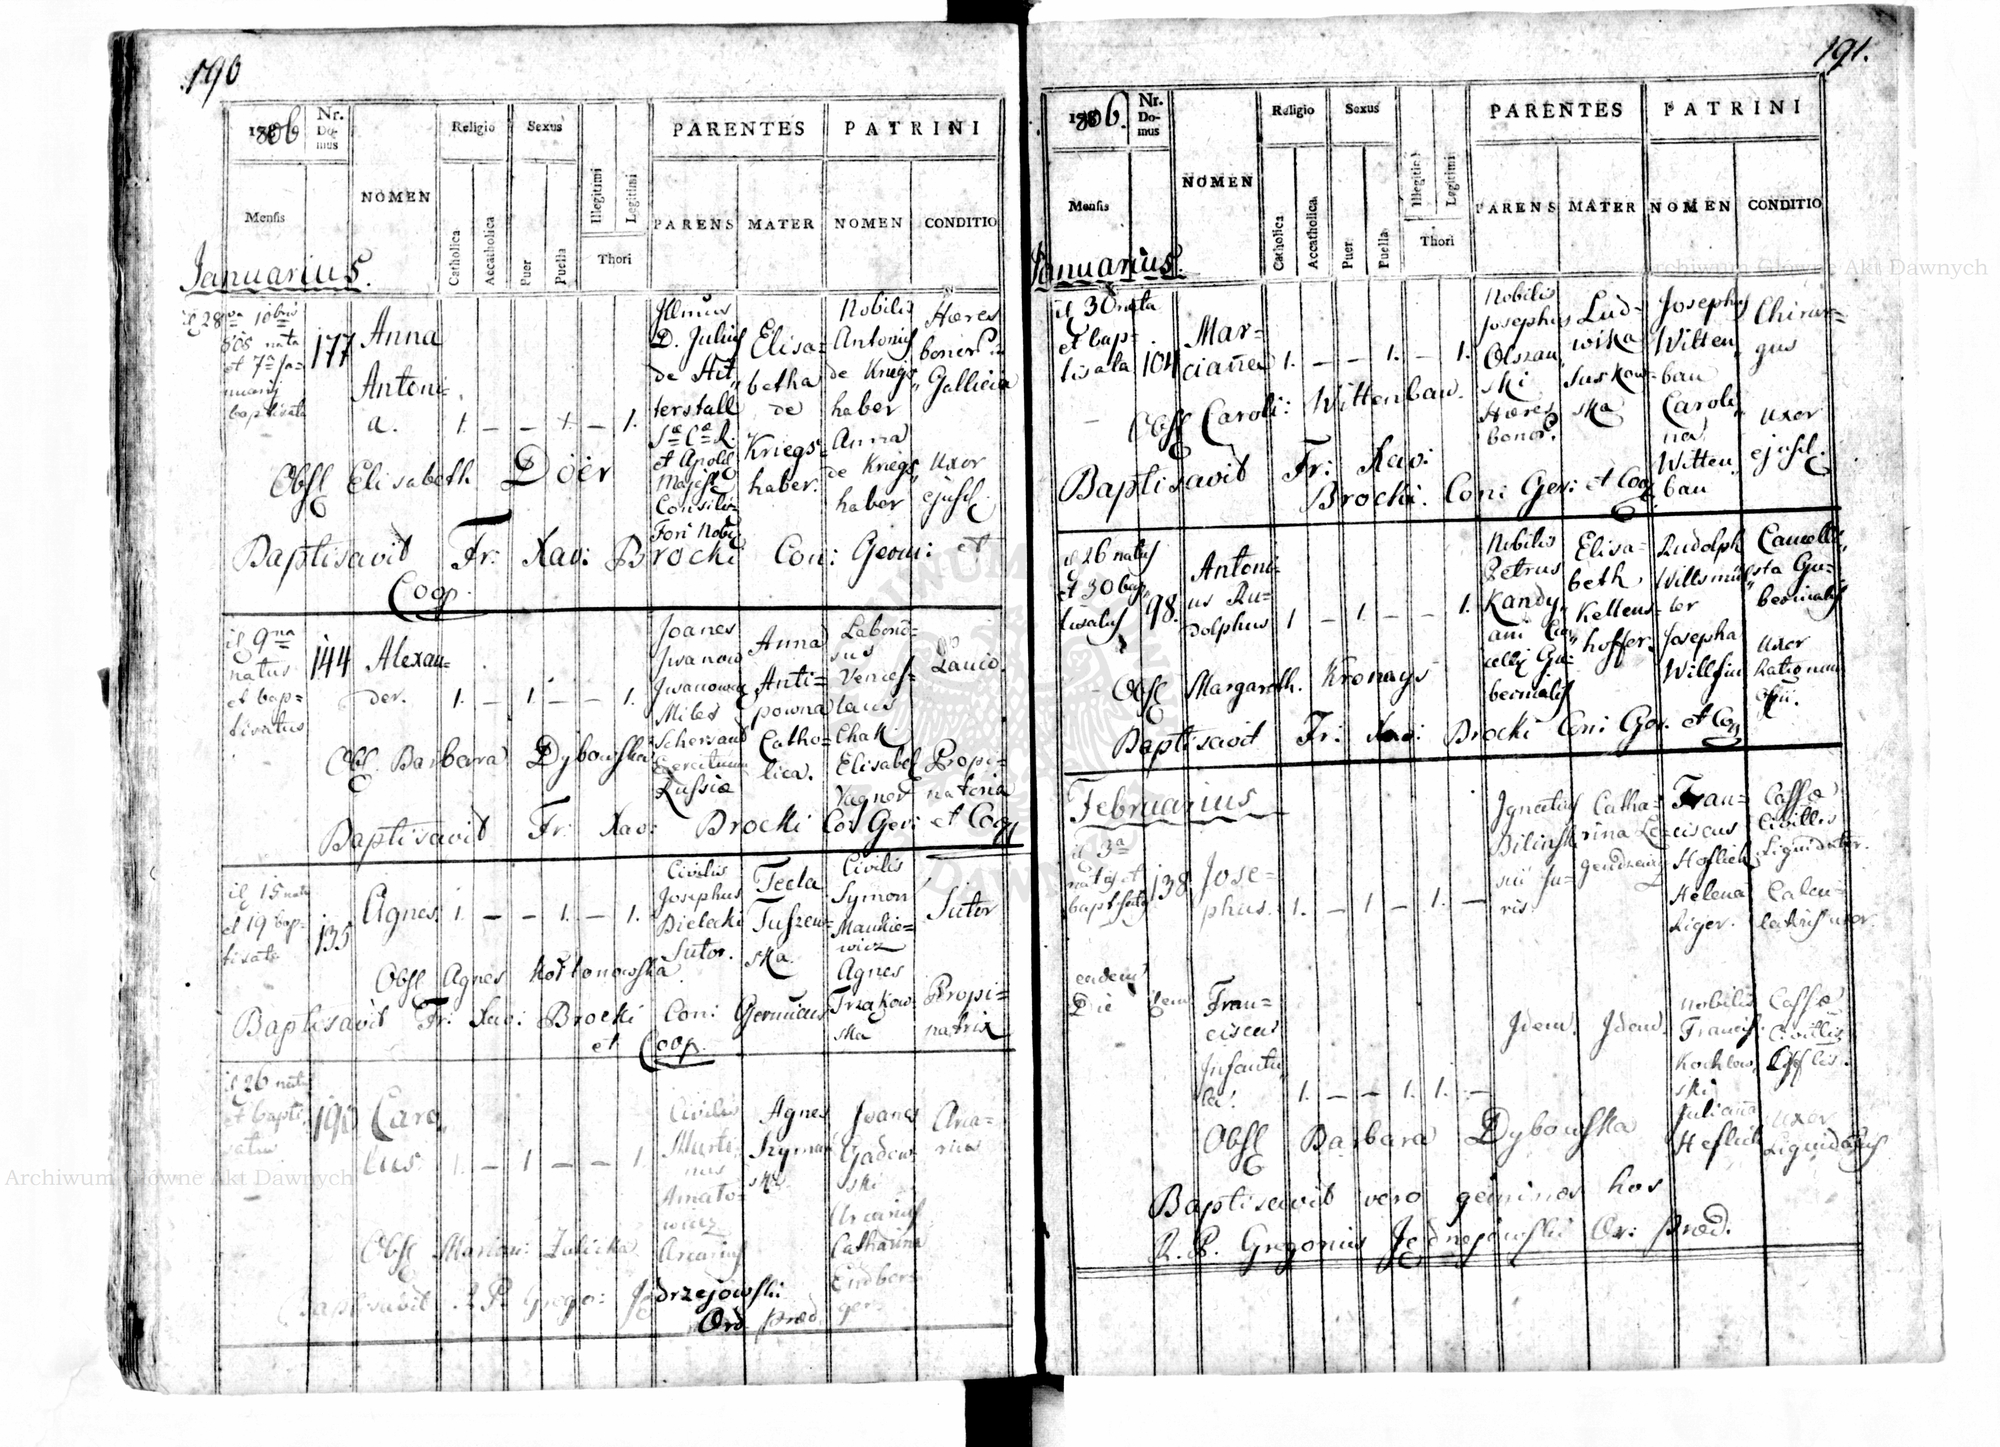 190
1806
Nr. Domus
NOMEN
Religio
Sexus
Illegitimi
Legitimi
PARENTES
PATRINI
Mensis
Catholica
Accatholica
Puer
Puella
Thori
PARENS
MATER
NOMEN
CONDITIO
Januarius.
d 28va 10bris
805 nata
et 7a Ja=
nuarij
baptisata
177
Anna
Antoni=
a.
1. — — 1. — 1.
Illmus
D. Julius
de Hit„
terstall
et Apost
Majest
Consilir
Fori Nobi
Elisa=
betha
de
Kriegs=
haber.
Nobilis
Antonius
de Kriegs„
haber
Anna
de Kriegs„
haber
Hæres
bonor in
Gallicia
Uxor
ejusd.
Obst Elisabeth Döer
Baptisavit Fr: Xav: Brocki Con: Germ: et
Coop.
d 9na
natus
et bap=
tisatus
144
Alexan=
der.
1. — 1. — — 1.
Joanes
Iwanow
Iwanowicz
Miles
Exercituum
Russiæ
Anna
Anti=
powna
Catho=
lica.
Vences=
laus
Chak
Elisabet
Vagner
Lanio.
Propi=
natoria
Obst. Barbara Dybowska
Baptisavit Fr: Xav: Brocki Con Ger: et Coop
d 15 nata
et 19 bap=
tisata
135
Agnes.
1. — — 1. — 1.
Civilis
Josephus
Bielecki
Sutor.
Tecla
Tuszew=
ska.
Civilis
Symon
Mankie=
wicz
Agnes
Trzakow
ska
Sutor
Propi=
natrix
Obst Agnes Kołtonowska
Baptisavit Fr: Xav: Brocki Con: Germicus
et Coop.
d 26 natus
et bapti
satus
190
Caro„
lus.
1. — 1 — — 1.
Civilis
Marti=
nus
Amato=
wicz
Arcarius
Agnes
Szyman
ska
Joanes
Gadow
ski
Arcarius
Catharina
Eindber
ger
Arca=
rius
Obst Marian: Zulicka
Baptisavit R P Grego: Jędrzejowski
Ord præd
191.
1806.
Nr. Domus
NOMEN
Religio
Sexus
Illegitimi
Legitimi
PARENTES
PATRINI
Mensis
Catholica
Accatholica
Puer
Puella
Thori
PARENS
MATER
NOMEN
CONDITIO
Januarius.
d 30 nata
et bap=
tisata
104
Mar=
cianna
1. — — 1. — 1.
Nobilis
Josephus
Olszan
ski
Hæres
bonor.
Lud=
wika
Juskow
ska
Josephus
Witten„
bau
Caroli„
na
Witten„
bau
Chirur=
gus
uxor
ejusd.
Obst Caroli: Wittenbau.
Baptisavit Fr: Xav:
Brocki. Con: Ger: et Coop
d 26 natus
et 30 bap„
tisatus
98.
Antoni=
us Ru=
dolphus
1 — 1. — — 1.
Nobilis
Petrus
Kandy„
ani Can„
celli Gu=
bernialis
Elisa=
beth
Kettens=
hoffer.
Rudolph
Willsmüs
ter
Josepha
Cancelli„
sta Gu=
bernialis
uxor
Rationum
Offi.
Obst Margareth. Kronays
Baptisavit Fr: Xav: Brocki Con: Ger. et Coop
Februarius
d 3a
natus et
baptisatus
138
Jose=
phus.
1. — 1 — 1. —
Ignatius
Bilinski
sui Ju=
ris
Catha=
rina Le
gendzewicz
Fran=
ciscus
Hoflich
Helena
Riger.
Cassæ
Civilis
Liquidator.
Calcu=
latoris uxor
eadem
Die
idem
Fran=
ciscus
Infantu„
la!
1. — — 1. 1. —
Idem.
Idem.
Nobilis
Francis.
Kochlow„
ski
Julianna
Heflich
Cassæ
Civillis
Offles.
uxor
Liquidatoris
Obst Barbara Dybowska
Baptisavit vero geminos hos
R. P. Gregorius Jędrzejowski Or: Præd.
Archiwum Główne Akt Dawnych
Archiwum Główne Akt Dawnych